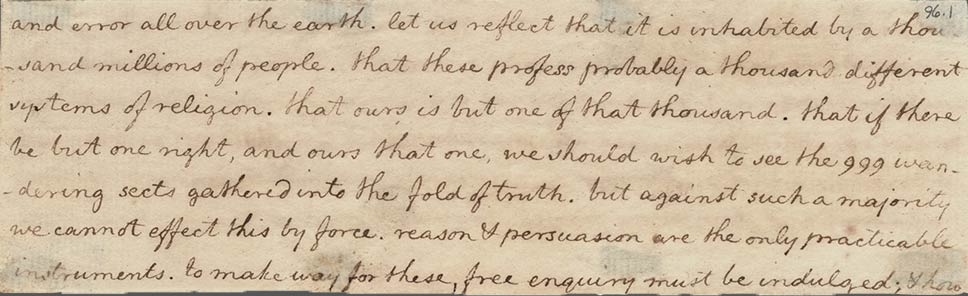 96.1
and error all over the earth. let us reflect that it is inhabited by a thou
-sand millions of people. that these profess probably a thousand different
systems of religion. that ours is but one of that thousand. that if there
be but one right, and ours that one, we should wish to see the 999 wan-
-dering sects gathered into the fold of truth. but against such a majority
we cannot effect this by force. reason & persuasion are the only practicable
instruments. to make way for these, free enquiry must be indulged; & how